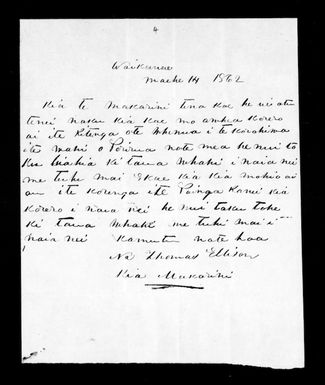 4
Waikanae
Maehe 14 1862
Kia te Makarini tena koe he ui atu
tenei naku kia koe mo amua korero
ai ite kitenga ote whenua i te
ite mahi o Porirua note mea he nui to
ku hiahia ki taua whahi i naia nei
me tuhi mai Ekoe kia kia mohio ai
au ite korenga ite Kanei kia
korero i naia nei he nui taku tohe
ki taua whahi me tuhi mai i
naia nei Kamutu nate hoa
Na Thomas Ellison
Kia Makarini